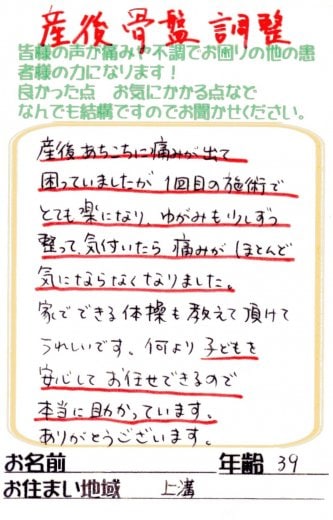 産後骨盤調整
皆様の声が痛みや不調でお困りの他の患
者様の力になります！
良かった点　お気にかかる点など
なんでも結構ですのでお聞かせください。
産後あちこちに痛みが出て
困っていましたが1回目の施術で
とても楽になり、ゆがみも少しずつ
整って、気付いたら 痛みが ほとんど
気にならなくなりました。
家でできる体操も教えて頂けて
うれしいです。何より子どもを
安心して お任せできるので
本当に助かっています。
ありがとうございます。
お名前　　　年齢 39
お住まい地域　上溝